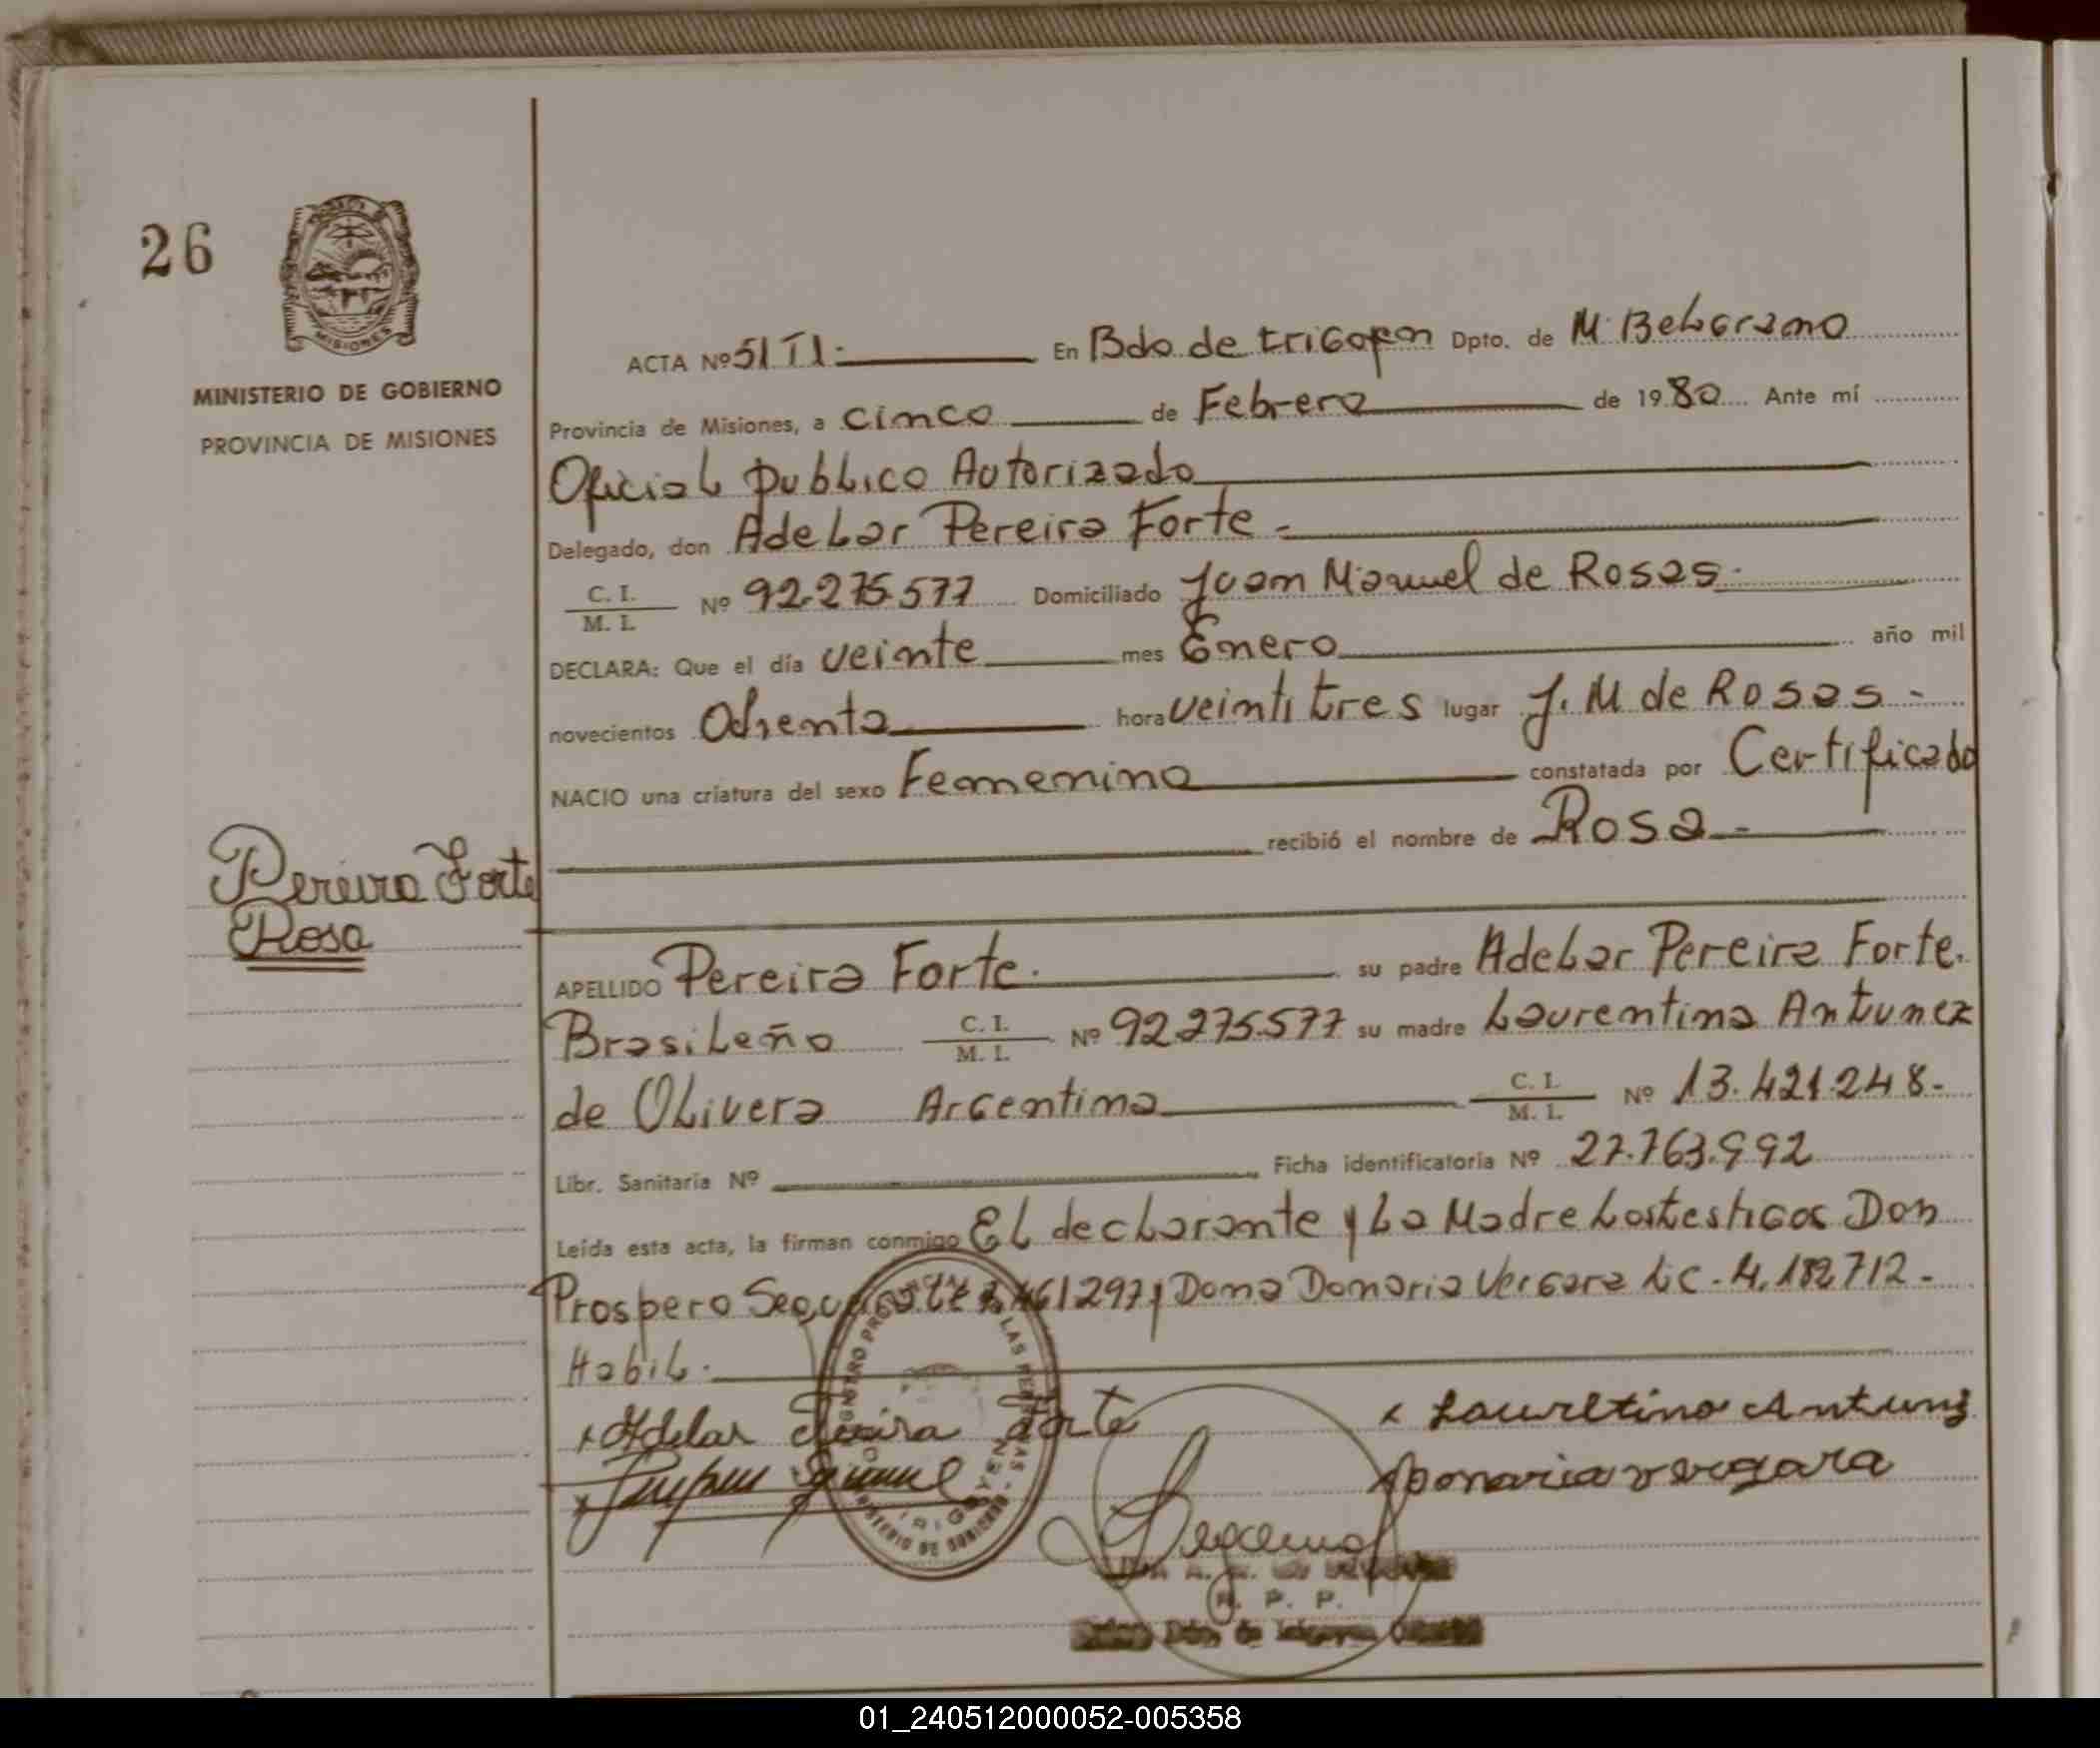 26
MISIONES
MINISTERIO DE GOBIERNO
PROVINCIA DE MISIONES
Pereira Forte
Rosa
ACTA Nº 51 T1.- En Bdo de trigoyen Dpto. de M. Belgrano
Provincia de Misiones, a cinco de Febrero de 1980 Ante mí
Oficial publico Autorizado
Delegado, don Adelar Pereira Forte.-
C. I. / M. I. Nº 92.275.577 Domiciliado Juan Manuel de Rosas.-
DECLARA: Que el día veinte mes Enero año mil
novecientos Ochenta hora veintitres lugar J. M de Rosas.-
NACIO una criatura del sexo Femenino constatada por Certificado
recibió el nombre de Rosa.-
APELLIDO Pereira Forte. su padre Adelar Pereira Forte.
Brasileño C. I. / M. I. Nº 92.275.577 su madre Laurentina Antunez
de Olivera Argentina C. I. / M. I. Nº 13.421.248-
Libr. Sanitaria Nº Ficha identificatoria Nº 27.763.992
Leída esta acta, la firman conmigo El declarante y La Madre Los testigos Don
Prospero 1297 y Dona Donaria Vergara L.C. 4.182712-
Habil.
x Adelar Pereira Forte
x Lauretino Antuns
Donaria vergara
R. P. P.
01_240512000052-005358